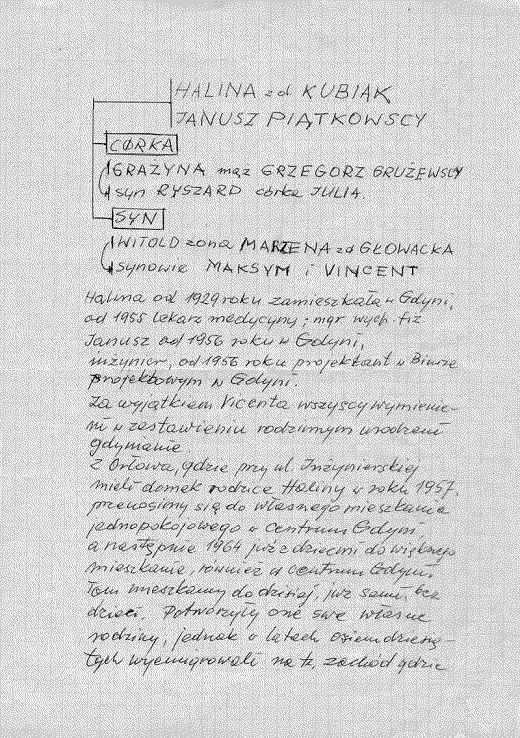 HALINA zd KUBIAK
JANUSZ PIĄTKOWSCY
CÓRKA
GRAŻYNA mąż GRZEGORZ GRUŻEWSCY
syn RYSZARD córka JULIA.
SYN
WITOLD żona MARZENA zd GŁOWACKA
synowie MAKSYM i VINCENT
Halina od 1929 roku zamieszkała w Gdyni,
od 1955 lekarz medycyny i mgr wych. fiz
Janusz od 1956 roku w Gdyni,
inżynier, od 1956 roku projektant w Biurze
projektowym w Gdyni.
Za wyjątkiem Vicenta wszyscy wymienie-
ni w zestawieniu rodzinnym urodzeni
gdynianie.
Z Orłowa, gdzie przy ul. Inżynierskiej
mieli domek rodzice Haliny w roku 1957.
przenosimy się do własnego mieszkania
jednopokojowego w centrum Gdyni
a następnie 1964 już z dziećmi do większego
mieszkania, również w centrum Gdyni.
Tam mieszkamy do dzisiaj, już sami, bez
dzieci. Potworzyły one swe własne
rodziny, jednak w latach osiemdziesią-
tych wyemigrowali na tz. zachód gdzie